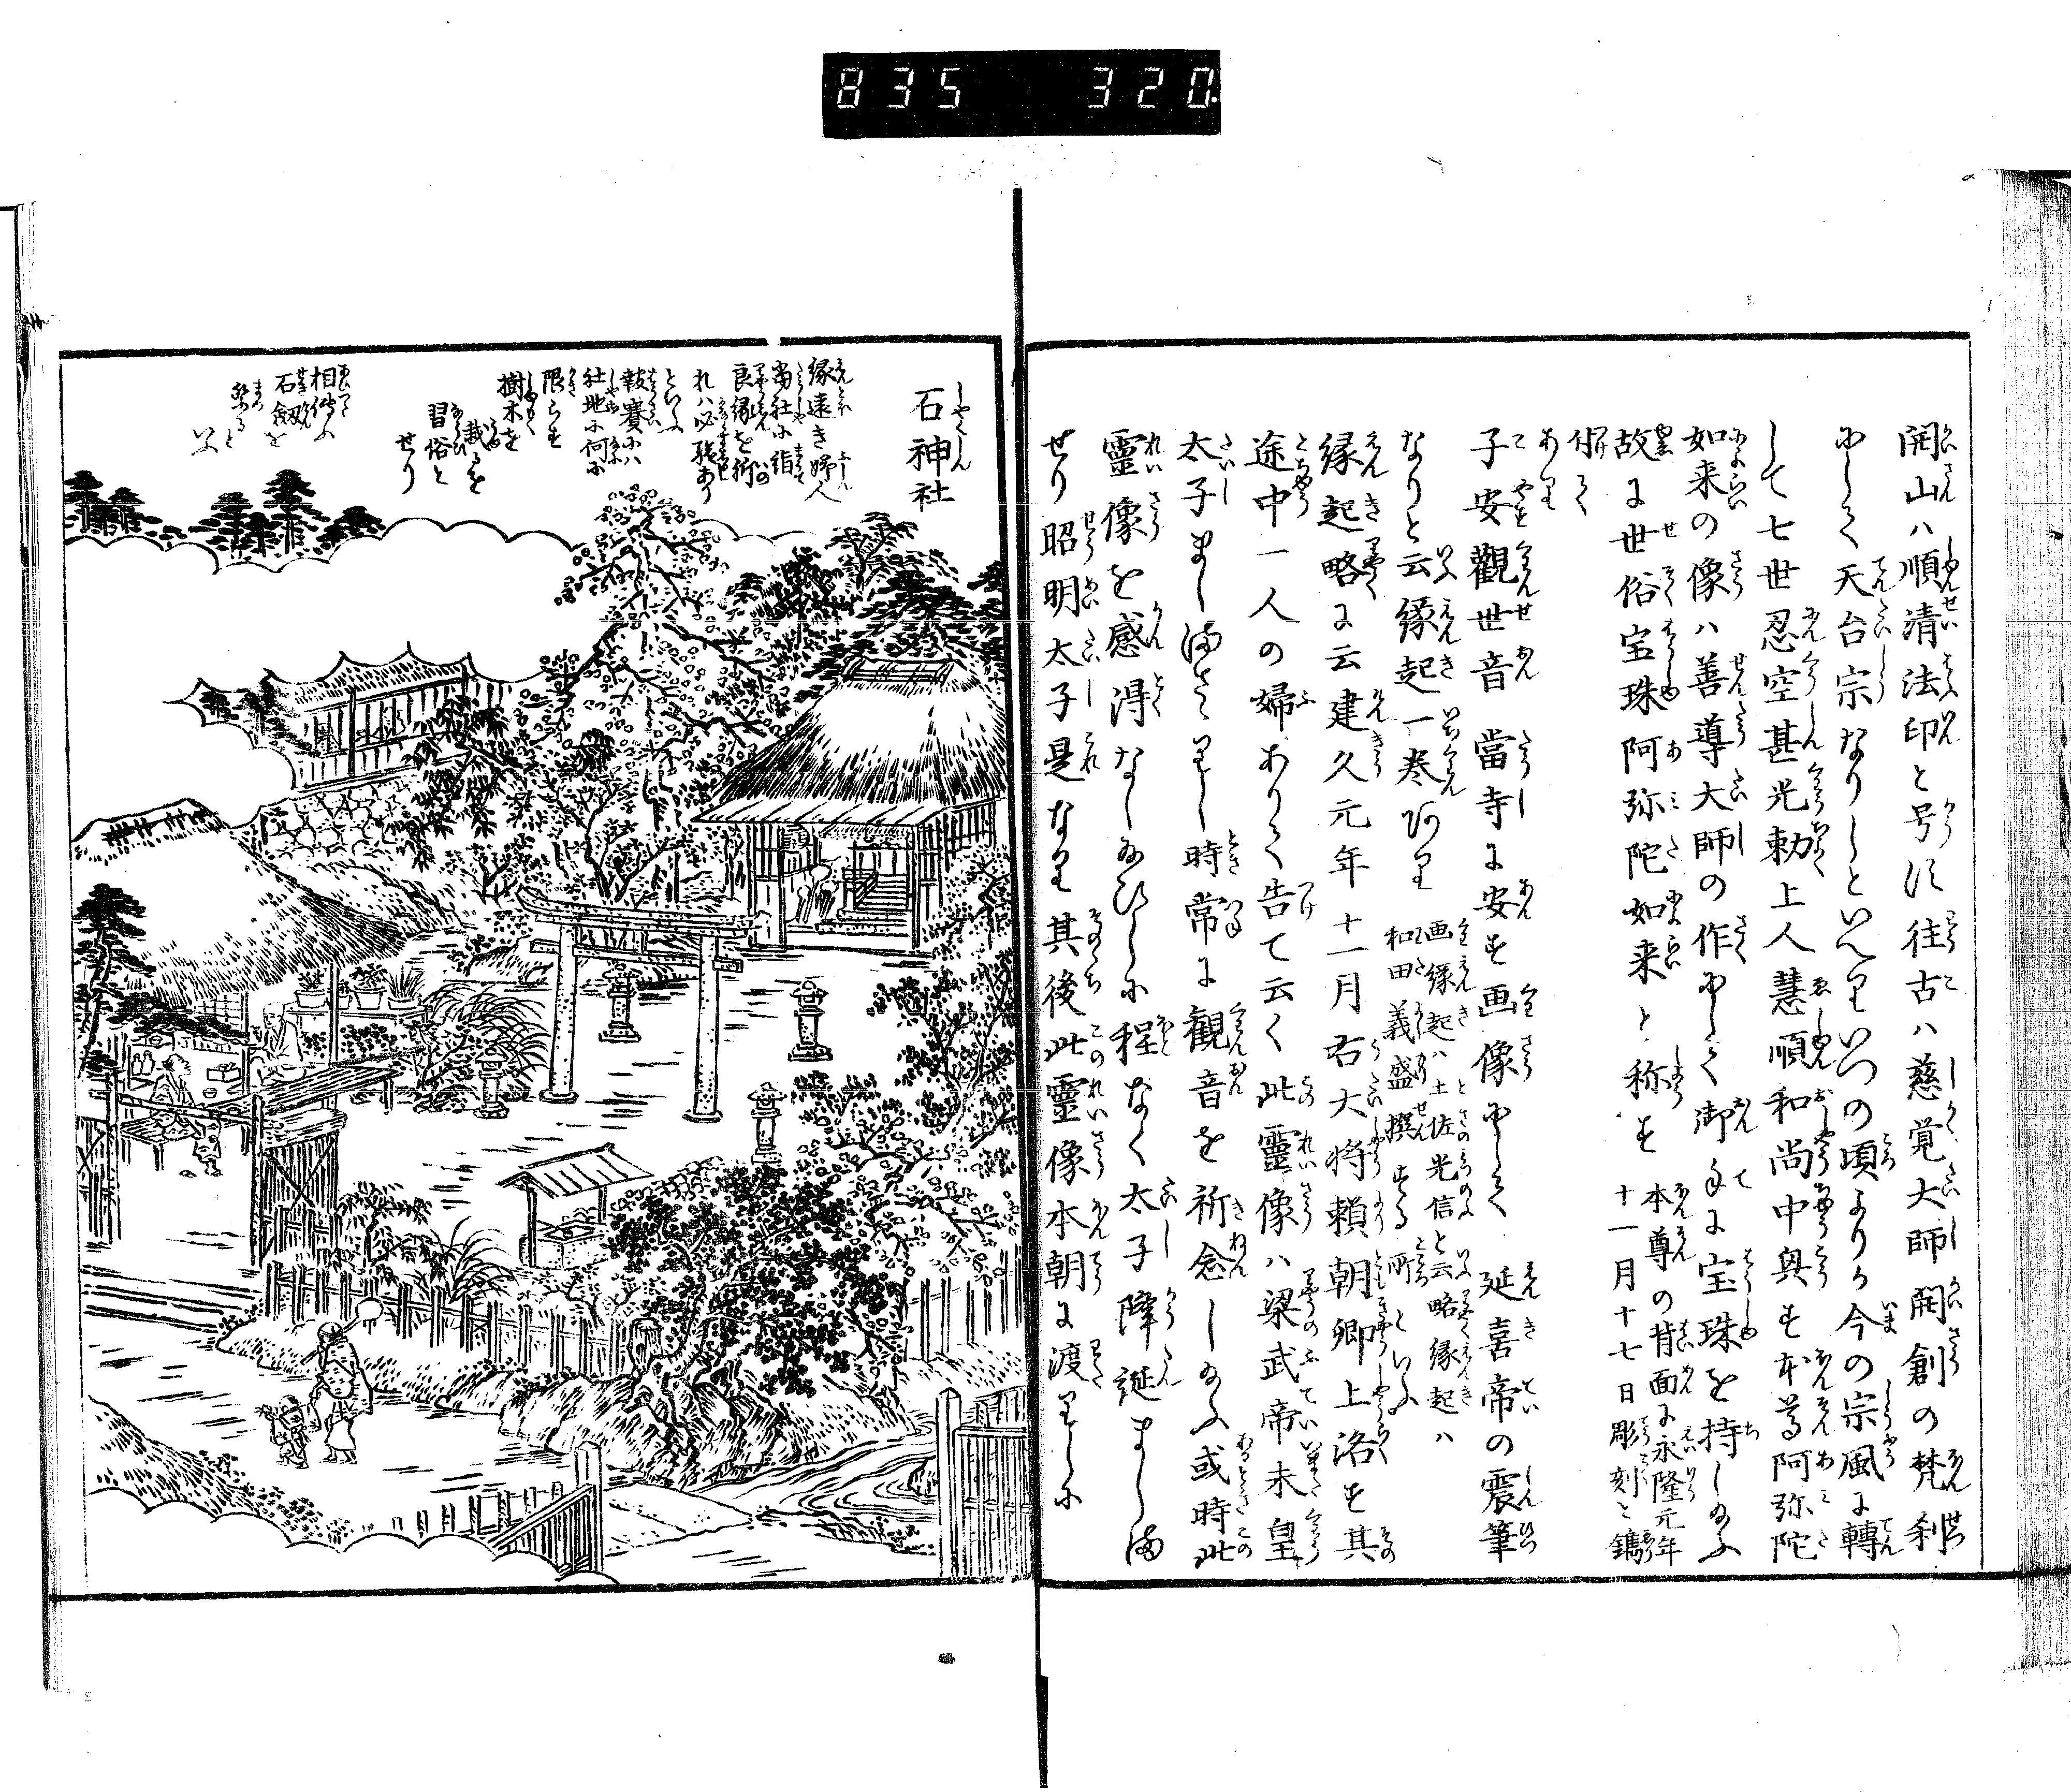 835 320
開山ハ順清法印と号す往古ハ慈覚大師開創の梵刹
にして天台宗なりしといへりいつの頃よりか今の宗風に轉
して七世忍空甚光勅上人慧順和尚中興す本尊阿弥陀
如来の像ハ善導大師の作にして御手に宝珠を持し給ふ
故に世俗宝珠阿弥陀如来と称す
本尊の背面に永隆元年
十一月十七日彫刻と鐫
付て
あり
子安觀世音當寺に安す画像にして延喜帝の震筆
なりと云縁起一巻あり
画縁起ハ土佐光信と云略縁起ハ
和田義盛撰する所といふ
縁起略に云建久元年十一月右大将頼朝卿上洛す其
途中一人の婦ありて告て云く此靈像ハ梁武帝未皇
太子ましまさゞりし時常に觀音を祈念し給ふ或時此
靈像を感得なし給ひしに程なく太子降誕ましま
せり昭明太子是なり其後此靈像本朝に渡りしに
石神社
縁遠き婦人
當社に詣
良縁を祈
れハ必験あり
といふ
報賽にハ
社地に何に
限らす
樹木を
栽るを
習俗と
せり
相傳ふ
石劔を
祭ると
いふ